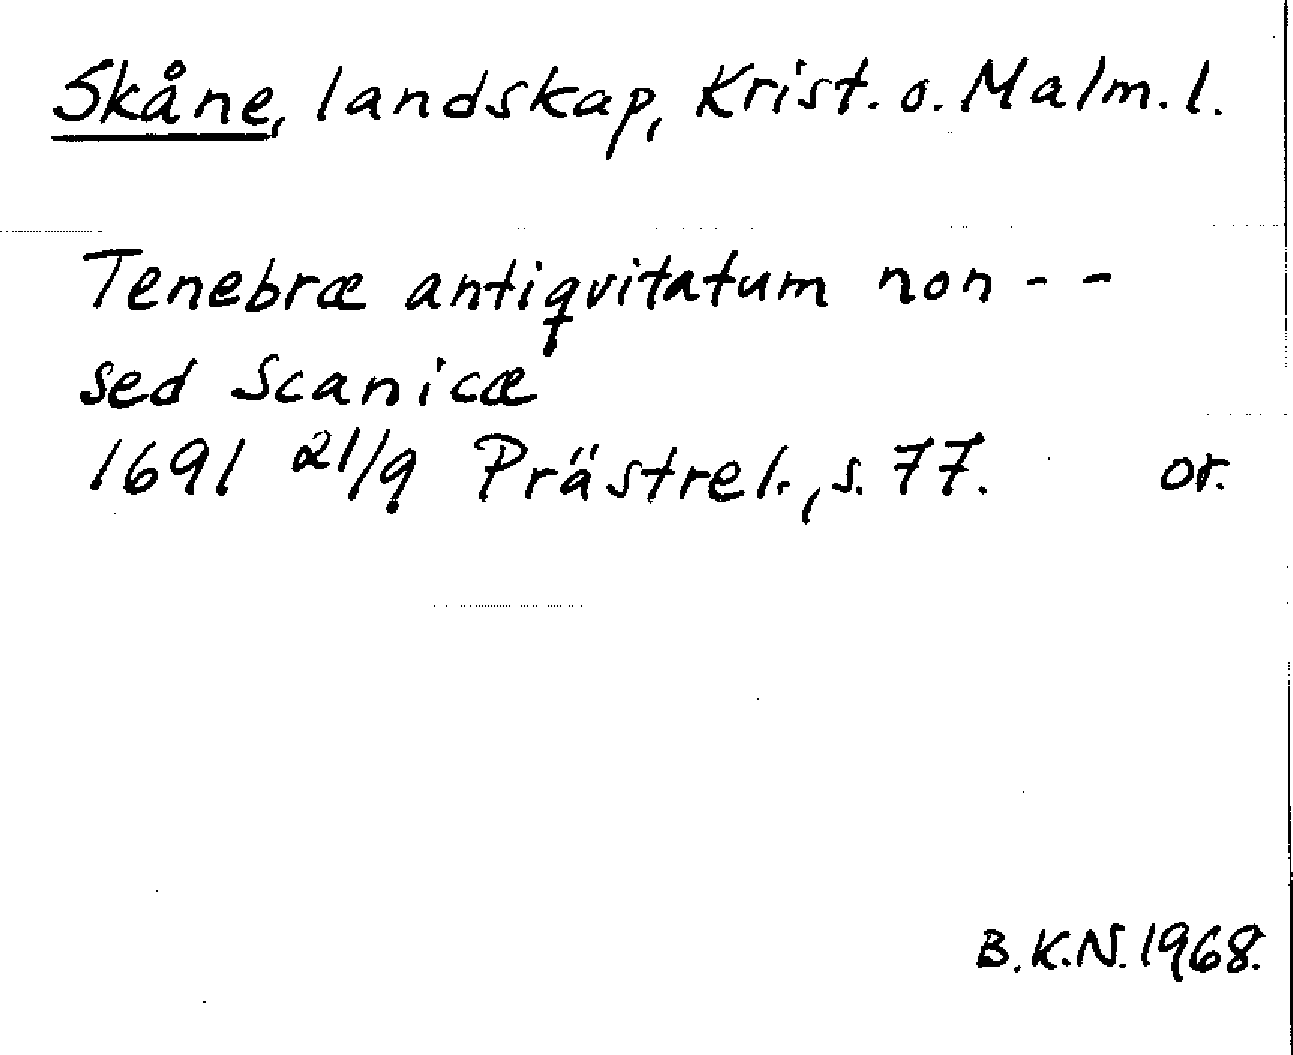 Skåne, landskap, Krist. o. Malm. l.
Tenebræ antiqvitatum non - -
sed Scanicæ
1691 21/9 Prästrel., s. 77. or.
B.K.N. 1968.